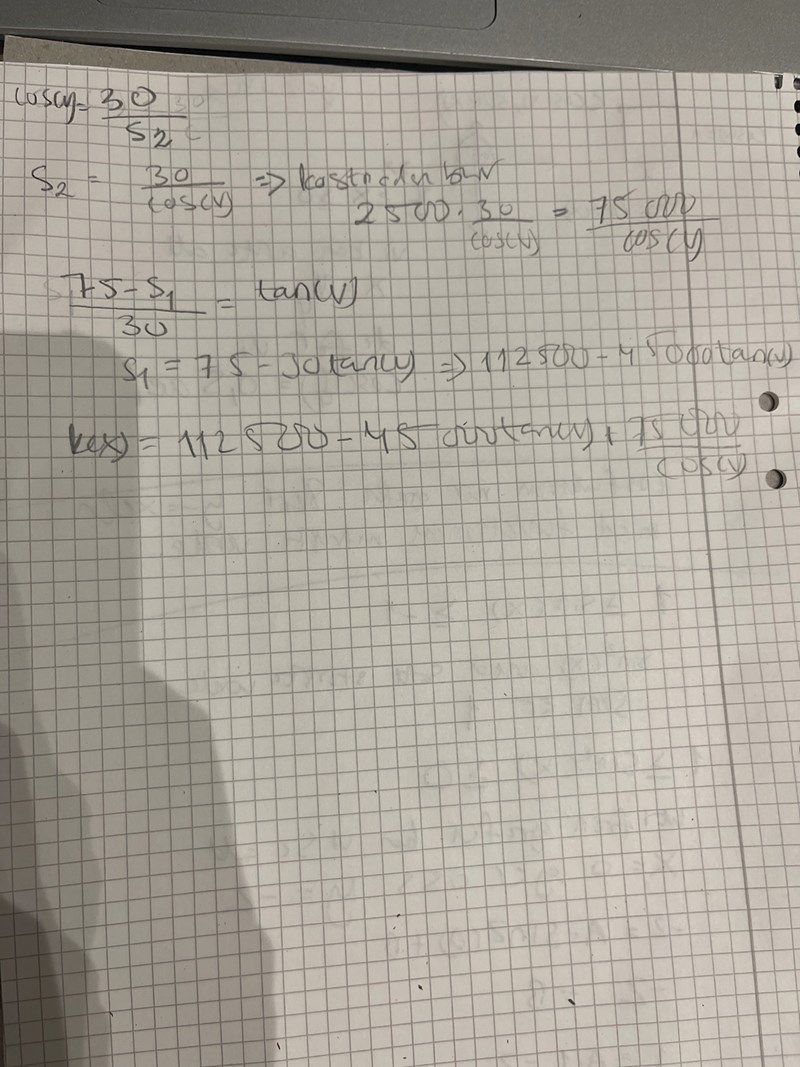 cos(v) = 30 / S2
S2 = 30 / cos(v) => kostnaden blir
2500 · 30 / cos(v) = 75 000 / cos(v)
75 - S1 / 30 = tan(v)
S1 = 75 - 30tan(v) => 112500 - 45000tan(v)
k(x) = 112500 - 45000tan(v) + 75 000 / cos(v)